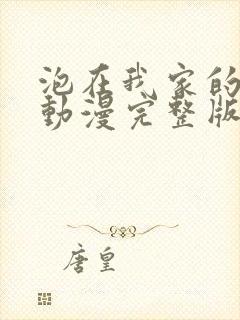 泡在我家的
動漫完整版
唐皇